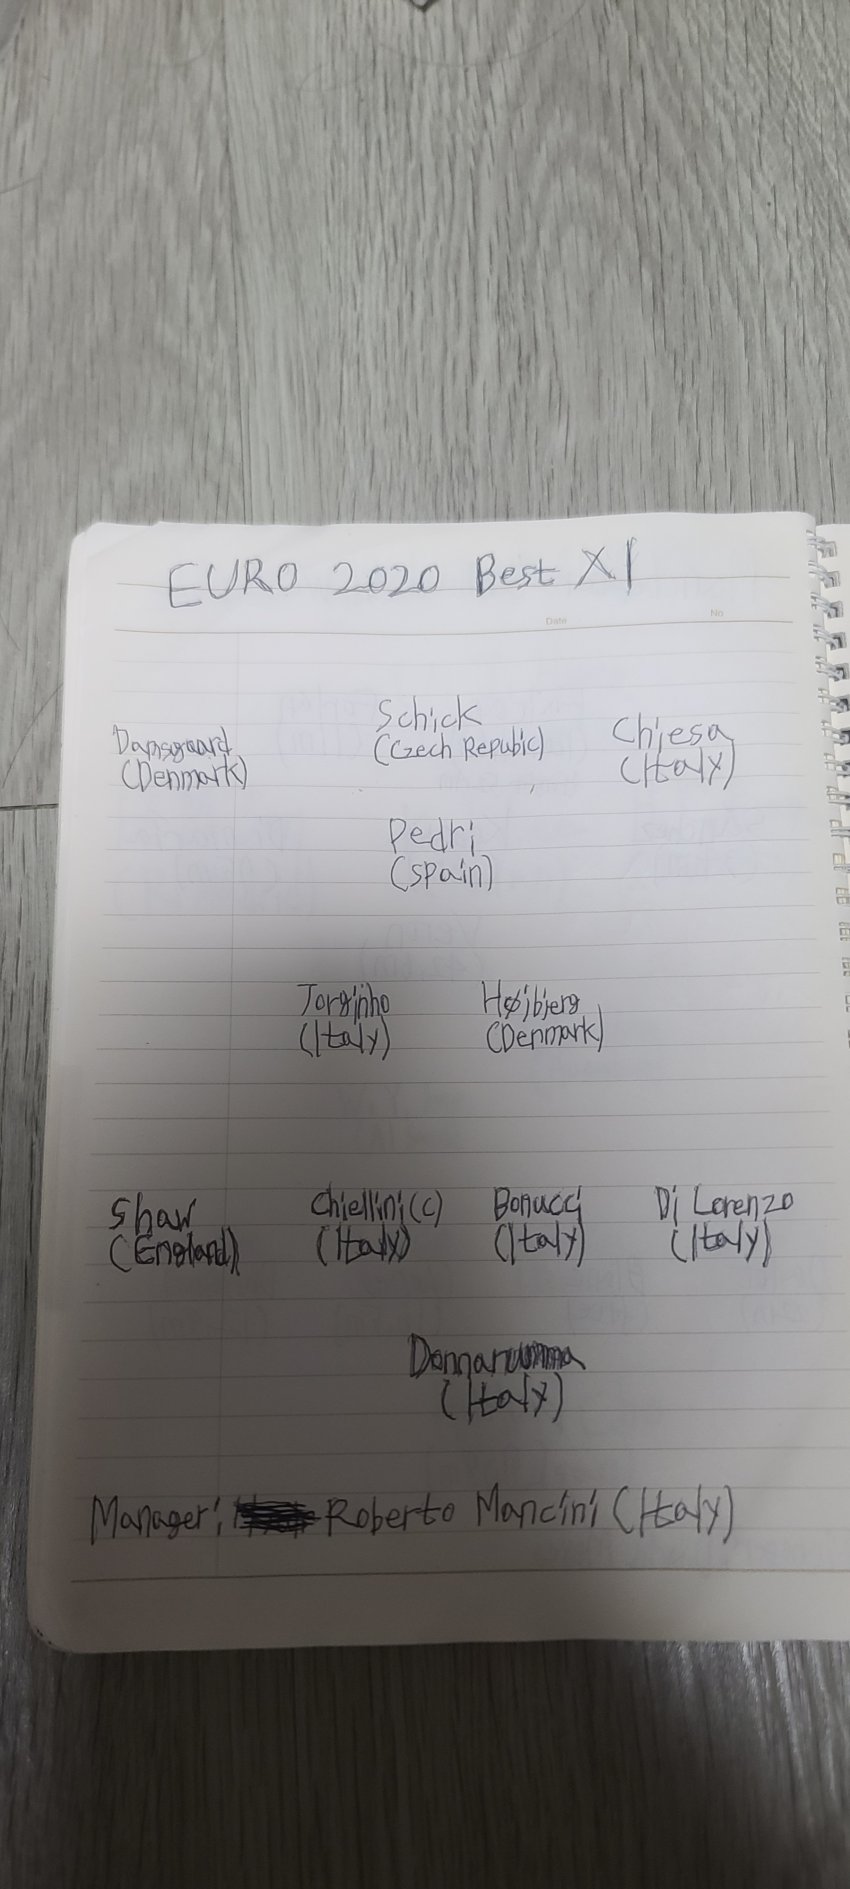 EURO 2020 Best XI
Date No
Schick
(Czech Repubic)
Damsgaard
(Denmark)
Chiesa
(Italy)
Pedri
(Spain)
Jorginho
(Italy)
Højbjerg
(Denmark)
Shaw
(England)
Chiellini(C)
(Italy)
Bonucci
(Italy)
Di Lorenzo
(Italy)
Donnarumma
(Italy)
Manager: Roberto Mancini (Italy)